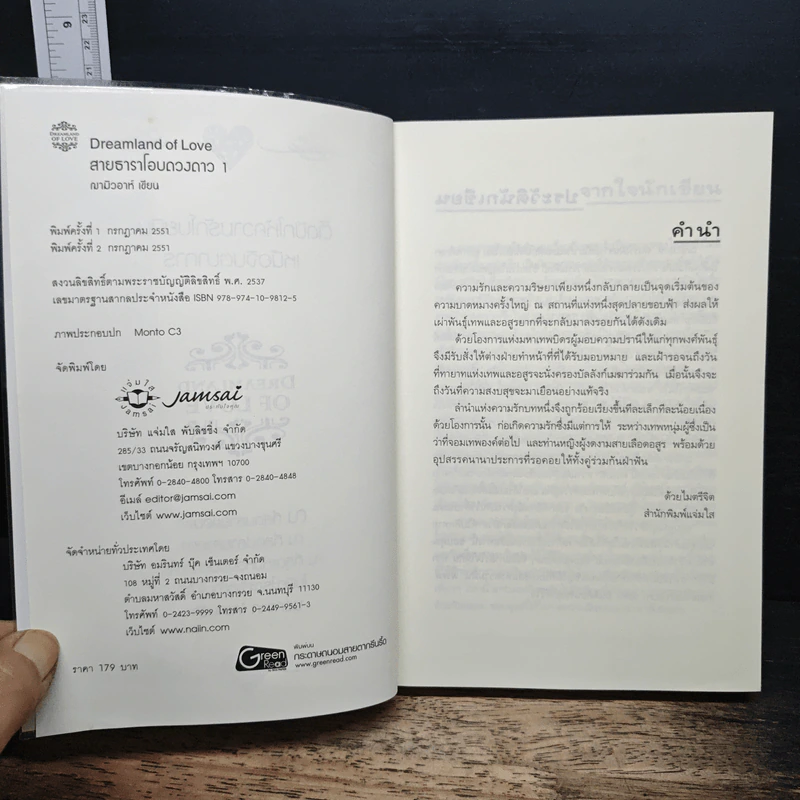 9
23
22
21
DREAMLAND
OF LOVE
Dreamland of Love
สายธาราโอบดวงดาว 1
ณามิวอาห์ เขียน
พิมพ์ครั้งที่ 1 กรกฎาคม 2551
พิมพ์ครั้งที่ 2 กรกฎาคม 2551
สงวนลิขสิทธิ์ตามพระราชบัญญัติลิขสิทธิ์ พ.ศ. 2537
เลขมาตรฐานสากลประจำหนังสือ ISBN 978-974-10-9812-5
ภาพประกอบปก Monto C3
จัดพิมพ์โดย
แจ่มใส
Jamsai
jamsai
บริษัท แจ่มใส พับลิชชิ่ง จำกัด
285/33 ถนนจรัญสนิทวงศ์ แขวงบางขุนศรี
เขตบางกอกน้อย กรุงเทพฯ 10700
โทรศัพท์ 0-2840-4800 โทรสาร 0-2840-4848
อีเมล์ editor@jamsai.com
เว็บไซต์ www.jamsai.com
จัดจำหน่ายทั่วประเทศโดย
บริษัท อมรินทร์ บุ๊ค เซ็นเตอร์ จำกัด
108 หมู่ที่ 2 ถนนบางกรวย-จงถนอม
ตำบลมหาสวัสดิ์ อำเภอบางกรวย จ.นนทบุรี 11130
โทรศัพท์ 0-2423-9999 โทรสาร 0-2449-9561-3
เว็บไซต์ www.naiin.com
ราคา 179 บาท
Green
Read
พิมพ์บน
กระดาษถนอมสายตากรีนรี้ด
www.greenread.com
คำนำ
ความรักและความริษยาเพียงหนึ่งกลับกลายเป็นจุดเริ่มต้นของ
ความบาดหมางครั้งใหญ่ ณ สถานที่แห่งหนึ่งสุดปลายขอบฟ้า ส่งผลให้
เผ่าพันธุ์เทพและอสูรยากที่จะกลับมาลงรอยกันได้ดังเดิม
ด้วยโองการแห่งมหาเทพบิดรผู้มอบความปรานีให้แก่ทุกพงศ์พันธุ์
จึงมีรับสั่งให้ต่างฝ่ายทำหน้าที่ที่ได้รับมอบหมาย และเฝ้ารอจนถึงวัน
ที่ทายาทแห่งเทพและอสูรจะนั่งครองบัลลังก์เมฆาร่วมกัน เมื่อนั้นจึงจะ
ถึงวันที่ความสงบสุขจะมาเยือนอย่างแท้จริง
ลำนำแห่งความรักบทหนึ่งจึงถูกร้อยเรียงขึ้นทีละเล็กทีละน้อยเนื่อง
ด้วยโองการนั้น ก่อเกิดความรักซึ่งมีแต่การให้ ระหว่างเทพหนุ่มผู้ซึ่งเป็น
ว่าที่จอมเทพองค์ต่อไป และท่านหญิงผู้งดงามสายเลือดอสูร พร้อมด้วย
อุปสรรคนานาประการที่รอคอยให้ทั้งคู่ร่วมกันฝ่าฟัน
ด้วยไมตรีจิต
สำนักพิมพ์แจ่มใส